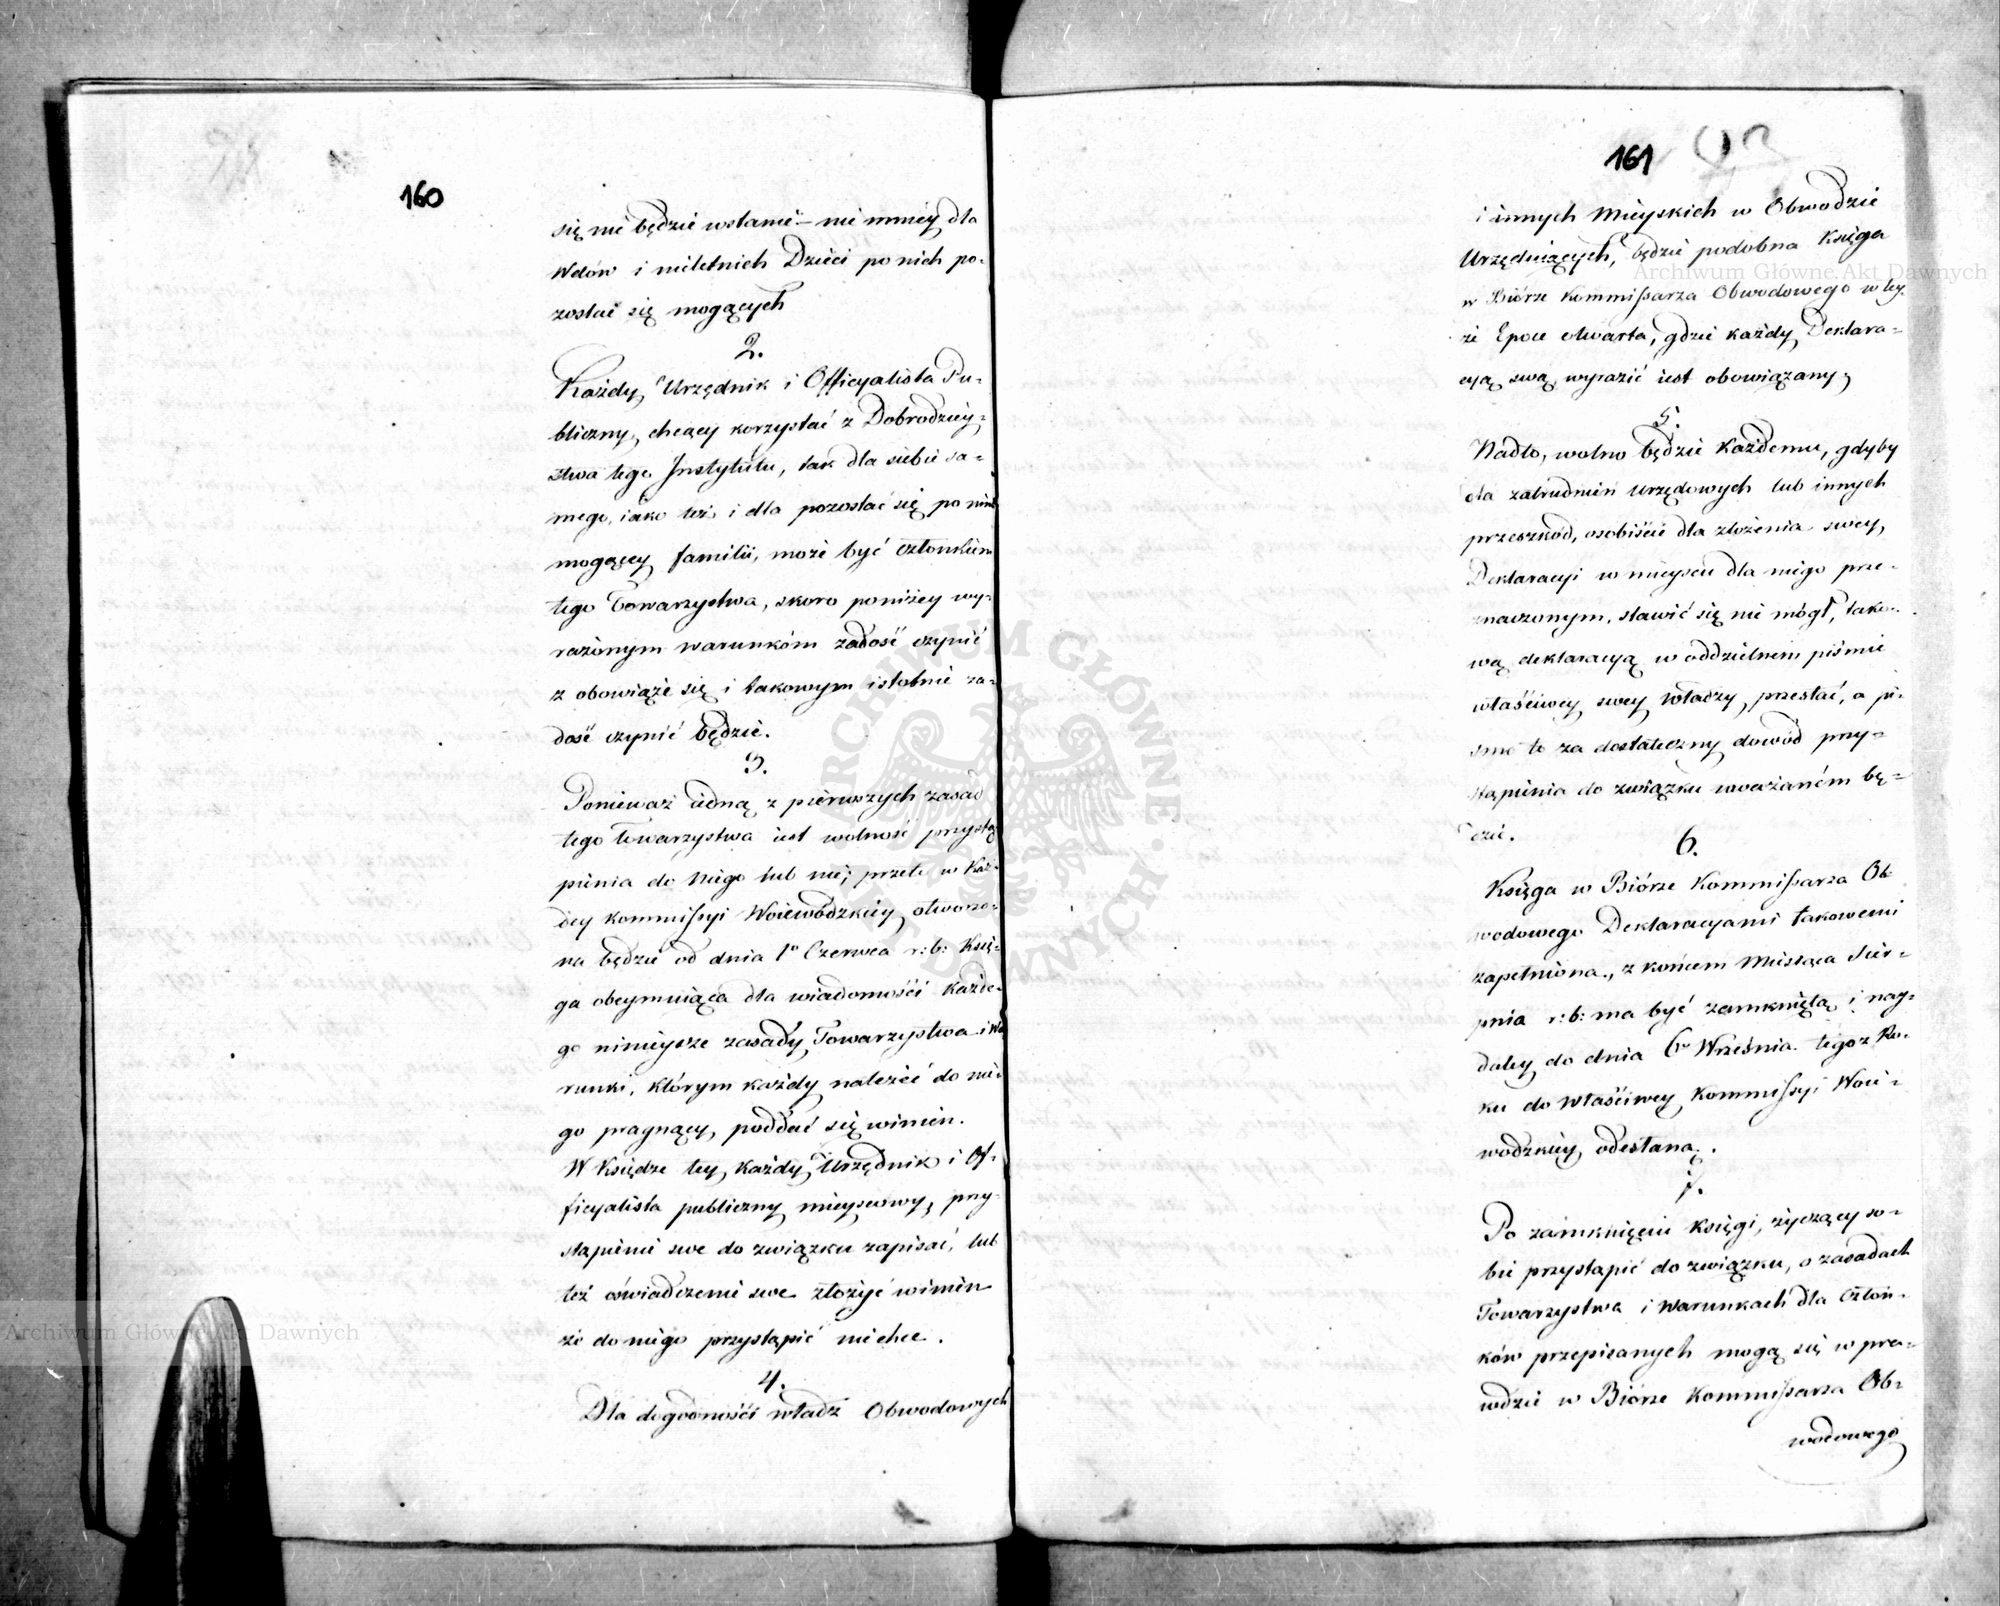 160
się nie będzie wstanie – nie mniey dla
Wdów i nieletnich Dzieci po nich po-
zostać się mogących
2.
Każdy Urzędnik i Officyalista Pu-
bliczny, chcący korzystać z Dobrodziey-
stwa tego Instytutu, tak dla siebie sa-
mego, iako też i dla pozostać się po nim
mogącey familii, może być członkiem
tego Towarzystwa, skoro poniżey wy-
rażonym warunkóm zadość czynić
z obowiąże się i takowym istotnie za-
dość czynić będzie.
3.
Ponieważ iedną z pierwszych zasad
tego towarzystwa iest wolność przystą
pienia do Niego lub nie; przeto w Każ-
dey Kommissyi Woiewódzkiey otworzo-
na będzie od dnia 1o Czerwca r: b: Księ-
ga obeymuiąca dla wiadomości każde-
go ninieysze zasady Towarzystwa i Wa
runki, którym każdy należeć do nie-
go pragnący, poddać się winien.
W Księdze tey, każdy Urzędnik i Of-
ficyalista publiczny mieyscowy, przy-
stąpienie swe do związku zapisać, lub
też oświadczenie swe złożyć winien
że do niego przystąpić niechce.
4.
Dla dogodności władz Obwodowych
161
i innych Mieyskich w Obwodzie
Urzęduiących, będzie podobna Księga
w Biórze Kommissarza Obwodowego w tey
że Epoce otwarta, gdzie każdy Deklara-
cyą swą wyrazić iest obowiązany;
5.
Nadto, wolno będzie Każdemu, gdyby
dla zatrudnień urzędowych lub innych
przeszkód, osobiście dla złożenia swey
Deklaracyi w mieyscu dla niego prze-
znaczonym, stawić się nie mógł, tako-
wą deklaracyą w oddzielnem piśmie
właściwey swey Władzy przesłać, a pi-
smo to za dostateczny dowód przy-
stąpienia do związku uważaném bę-
dzie.
6.
Księga w Biórze Kommissarza Ob
wodowego Deklaracyami takowemi
zapełniona, z końcem Miesiąca Sier-
pnia r: b: ma być zamkniętą i nay-
daley do dnia 6o Września tegoż Ro-
ku do Właściwey Kommissyi Woie-
wodzkiey odesłaną.
7.
Po zamknięciu Księgi, życzący so-
bie przystąpić do związku, o zasadach
Towarzystwa i Warunkach dla Człon-
ków przepisanych mogą się w pra-
wdzie w Biórze Kommissarza Ob-
wodowego
Archiwum Główne Akt Dawnych
Archiwum Główne Akt Dawnych
ARCHIWUM GŁÓWNE AKT DAWNYCH